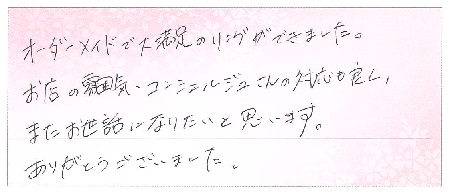 オーダーメイドで大満足のリングができました。
お店の雰囲気・コンシェルジュさんの対応も良く、
またお世話になりたいと思います。
ありがとうございました。